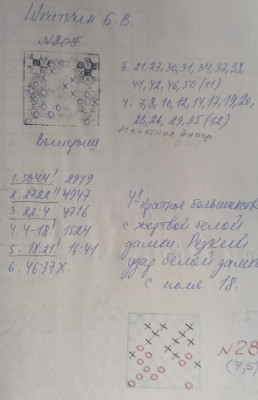 Шкиткин Б.В.
N805
Б. 21,27,30,31,34,37,38,
41,42,46,50 (11)
Ч. 7,8,10,12,14,17,19,20,
23,26,29,35 (12)
Начальная диагр.
Выигрыш
1. 5044! 2949
2. 2722!! 4947
3. 22:4 4716
4. 4-18! 1524
5. 18:21! 16:41
6. 46:37 X.
4-кратное большинство
с жертвой белой
дамки. Редкий
удар белой дамки
с поля 18.
N28
(7,5)